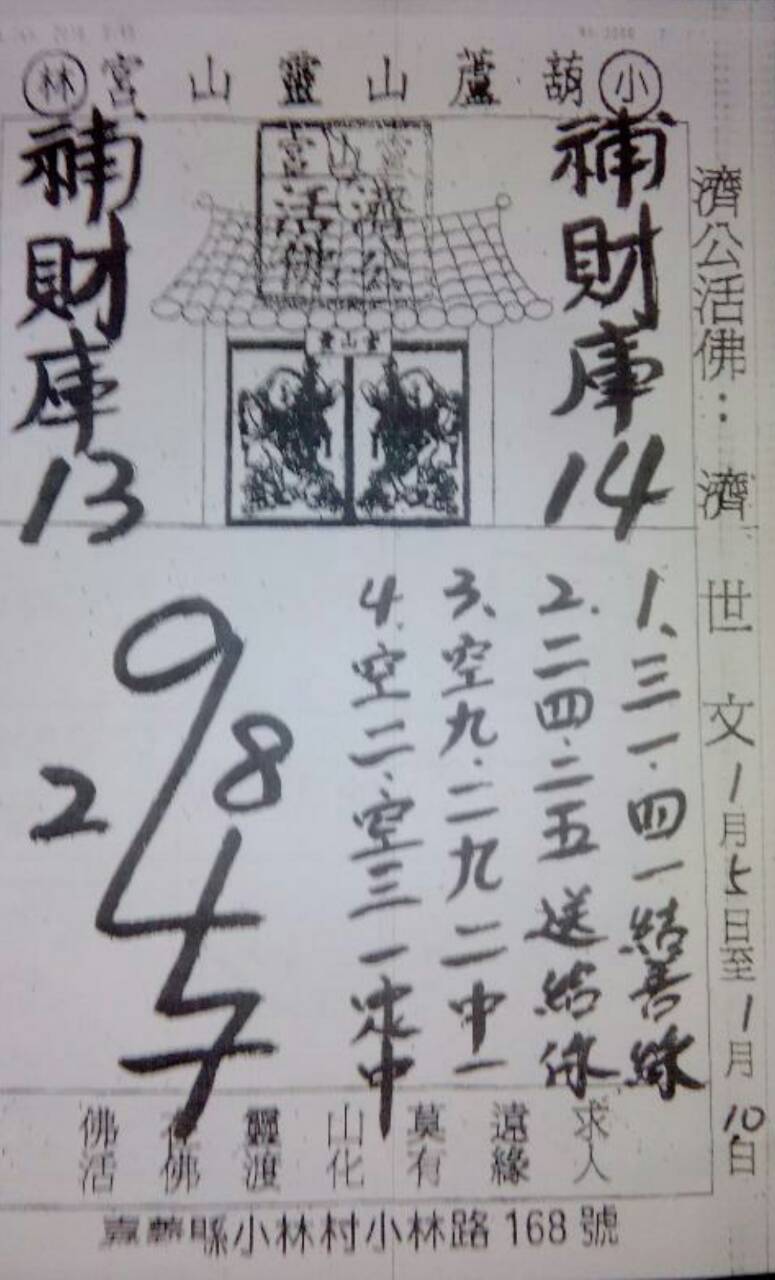 小 葫蘆山靈山宮 林
濟公活佛：濟世文 1月5日至1月10日
補財庫14
補財庫13
濟公活佛
1、三一.四一結善緣
2.二四.二五送給你
3、空九.二九二中一
4.空二.空三一定中
9
8
2
4
7
求人
遠緣
莫有
山化
靈渡
佛
佛活
嘉義縣小林村小林路168號